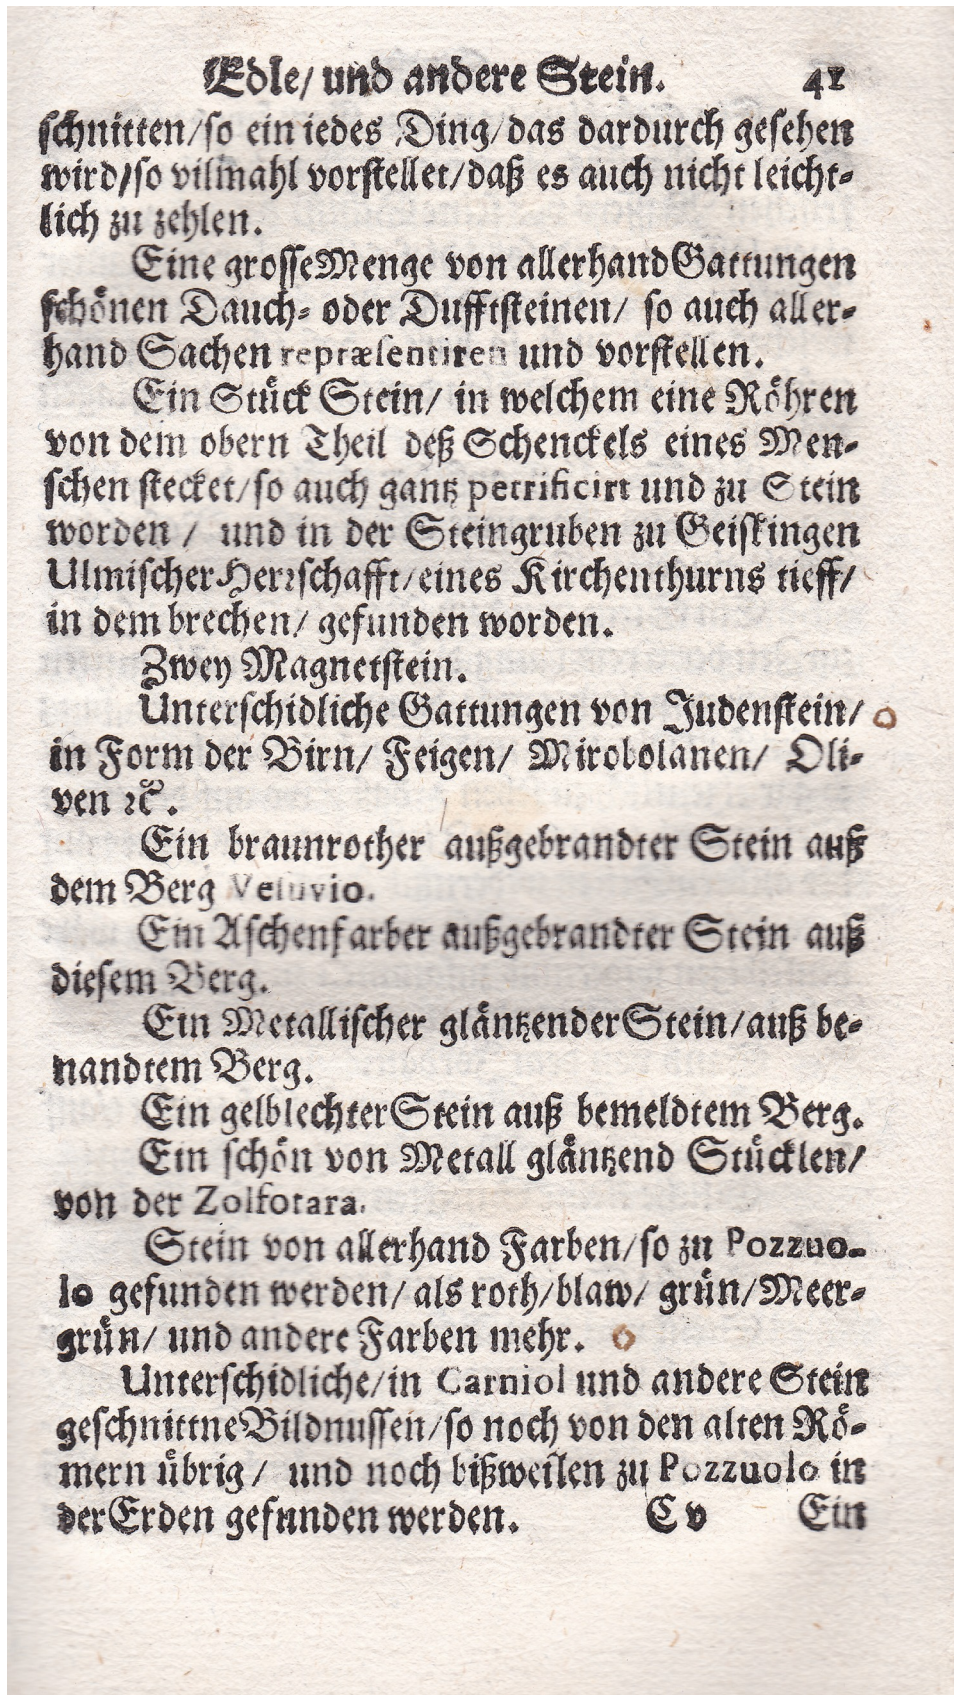 Edle/ und andere Stein. 41
schnitten/so ein iedes Ding/das dardurch gesehen
wird/so vilmahl vorstellet/daß es auch nicht leicht-
lich zu zehlen.
Eine grosse Menge von allerhand Gattungen
schönen Dauch- oder Dufftsteinen/ so auch aller-
hand Sachen repræsentiren und vorstellen.
Ein Stück Stein/ in welchem eine Röhren
von dem obern Theil deß Schenckels eines Men-
schen stecket/so auch gantz petrificirt und zu Stein
worden / und in der Steingruben zu Geiskingen
Ulmischer Herrschafft/eines Kirchenthurns tieff/
in dem brechen/ gefunden worden.
Zwey Magnetstein.
Unterschidliche Gattungen von Judenstein/
in Form der Birn/ Feigen/ Mirobolanen/ Oli-
ven ꝛc.
Ein braunrother außgebrandter Stein auß
dem Berg Vesuvio.
Ein Aschenfarber außgebrandter Stein auß
diesem Berg.
Ein Metallischer gläntzender Stein/auß be-
nandtem Berg.
Ein gelblechter Stein auß bemeldtem Berg.
Ein schön von Metall gläntzend Stücklen/
von der Zolfotara.
Stein von allerhand Farben/so zu Pozzuo-
lo gefunden werden/ als roth/blaw/ grün/Meer-
grün/ und andere Farben mehr.
Unterschidliche/in Carniol und andere Stein
geschnittne Bildnussen/so noch von den alten Rö-
mern übrig/ und noch bißweilen zu Pozzuolo in
der Erden gefunden werden. C v Ein